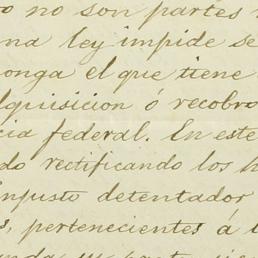 o no son partes
na ley impide se
onga el que tiene
lquisicion ó recobro
cia federal. En este
do rectificando los h
injusto detentador
s, pertenecientes á